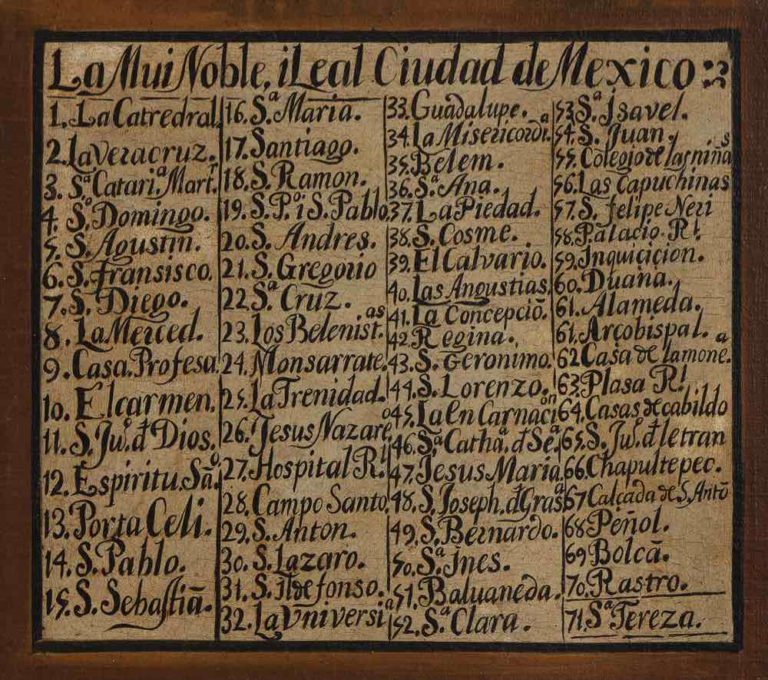 La Mui Noble, i Leal Ciudad de Mexico:
1. La Catredral.
2. La Veracruz.
3. Sª Catariª Mart.
4. Sº Domingo.
5. S. Agustin.
6. S. fransisco.
7. S. Diego.
8. La Merced.
9. Casa Profesa
10. El carmen.
11. S. Juº. dͤ Dios.
12. Espiritu Sāº.
13. Porta Celi.
14. S. Pablo.
15. S. Sebastiā.
16. Sª Maria.
17. Santiago.
18. S. Ramon.
19. S. Pº i S. Pablo.
20. S. Andres.
21. S. Gregorio
22. Sª Cruz.
23. Los Belenist.as
24. Monsarrate.
25. La Trenidad.
26. Jesus Nazareº
27. Hospital Rl.
28. Campo Santo.
29. S. Anton.
30. S. Lazaro.
31. S. Ildefonso.
32. La Vniversi
33. Guadalupe.
34. La Misericordª.
35. Belem.
36. Sª Ana.
37. La Piedad.
38. S. Cosme.
39. El Calvario.
40. Las Angustias
41. La Concepciō.
42. Regina.
43. S. Geronimo.
44. S. Lorenzo.
45. La En Carnacion
46. Sª Cathª. dͤ Seª.
47. Jesus Maria.
48. S. Joseph. dͤ Graª
49. S. Bernardo.
50. Sª Ines.
51. Baluaneda.
52. Sª Clara.
53. Sª Isavel.
54. S. Juan.
55. Colegio de las niñas
56. Las Capuchinas
57. S. felipe Neri
58. Palacio. Rl.
59. Inquicicion.
60. Duana.
61. Alameda.
61. Arcobispal.
62 Casa de la moneª.
63. Plasa Rl.
64. Casas de cabildo
65. S. Juº. dͤ letran
66. Chapultepec.
67 Calçada de S. Antº
68 Peñol.
69 Bolcā.
70. Rastro.
71. Sª Tereza.